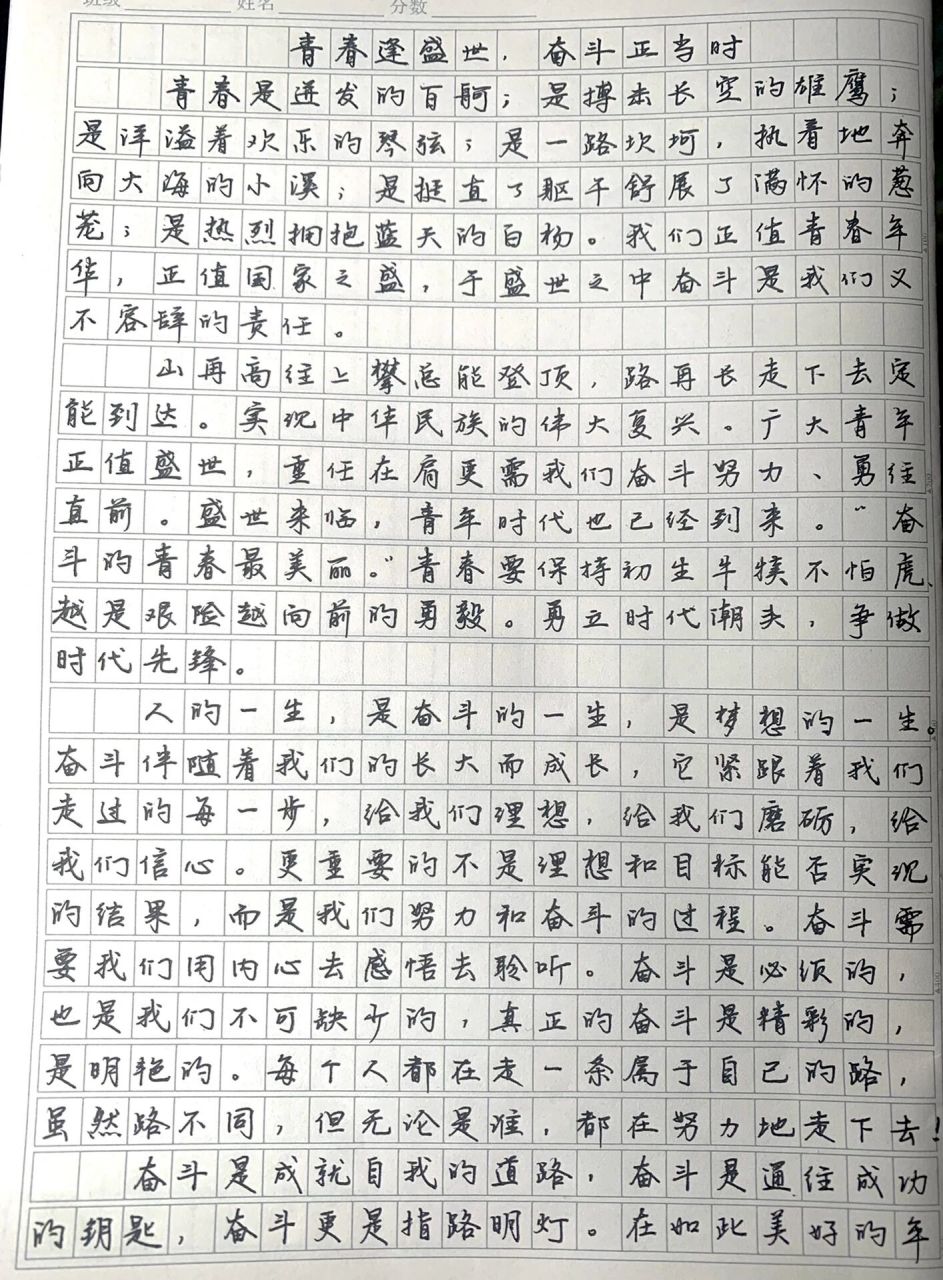 班级 姓名 分数
青春逢盛世，奋斗正当时
青春是迸发的百舸；是搏击长空的雄鹰；
是洋溢着欢乐的琴弦；是一路坎坷，执着地奔
向大海的小溪；是挺直了躯干舒展了满怀的葱
茏；是热烈拥抱蓝天的白杨。我们正值青春年
华，正值国家之盛，于盛世之中奋斗是我们义
不容辞的责任。
山再高往上攀总能登顶，路再长走下去定
能到达。实现中华民族的伟大复兴。广大青年
正值盛世，重任在肩更需我们奋斗努力、勇往
直前。盛世来临，青年时代也已经到来。“奋
斗的青春最美丽。”青春要保持初生牛犊不怕虎、
越是艰险越向前的勇毅。勇立时代潮头，争做
时代先锋。
人的一生，是奋斗的一生，是梦想的一生。
奋斗伴随着我们的长大而成长，它紧跟着我们
走过的每一步，给我们理想，给我们磨砺，给
我们信心。更重要的不是理想和目标能否实现
的结果，而是我们努力和奋斗的过程。奋斗需
要我们用内心去感悟去聆听。奋斗是必须的，
也是我们不可缺少的，真正的奋斗是精彩的，
是明艳的。每个人都在走一条属于自己的路，
虽然路不同，但无论是谁，都在努力地走下去！
奋斗是成就自我的道路，奋斗是通往成功
的钥匙，奋斗更是指路明灯。在如此美好的年